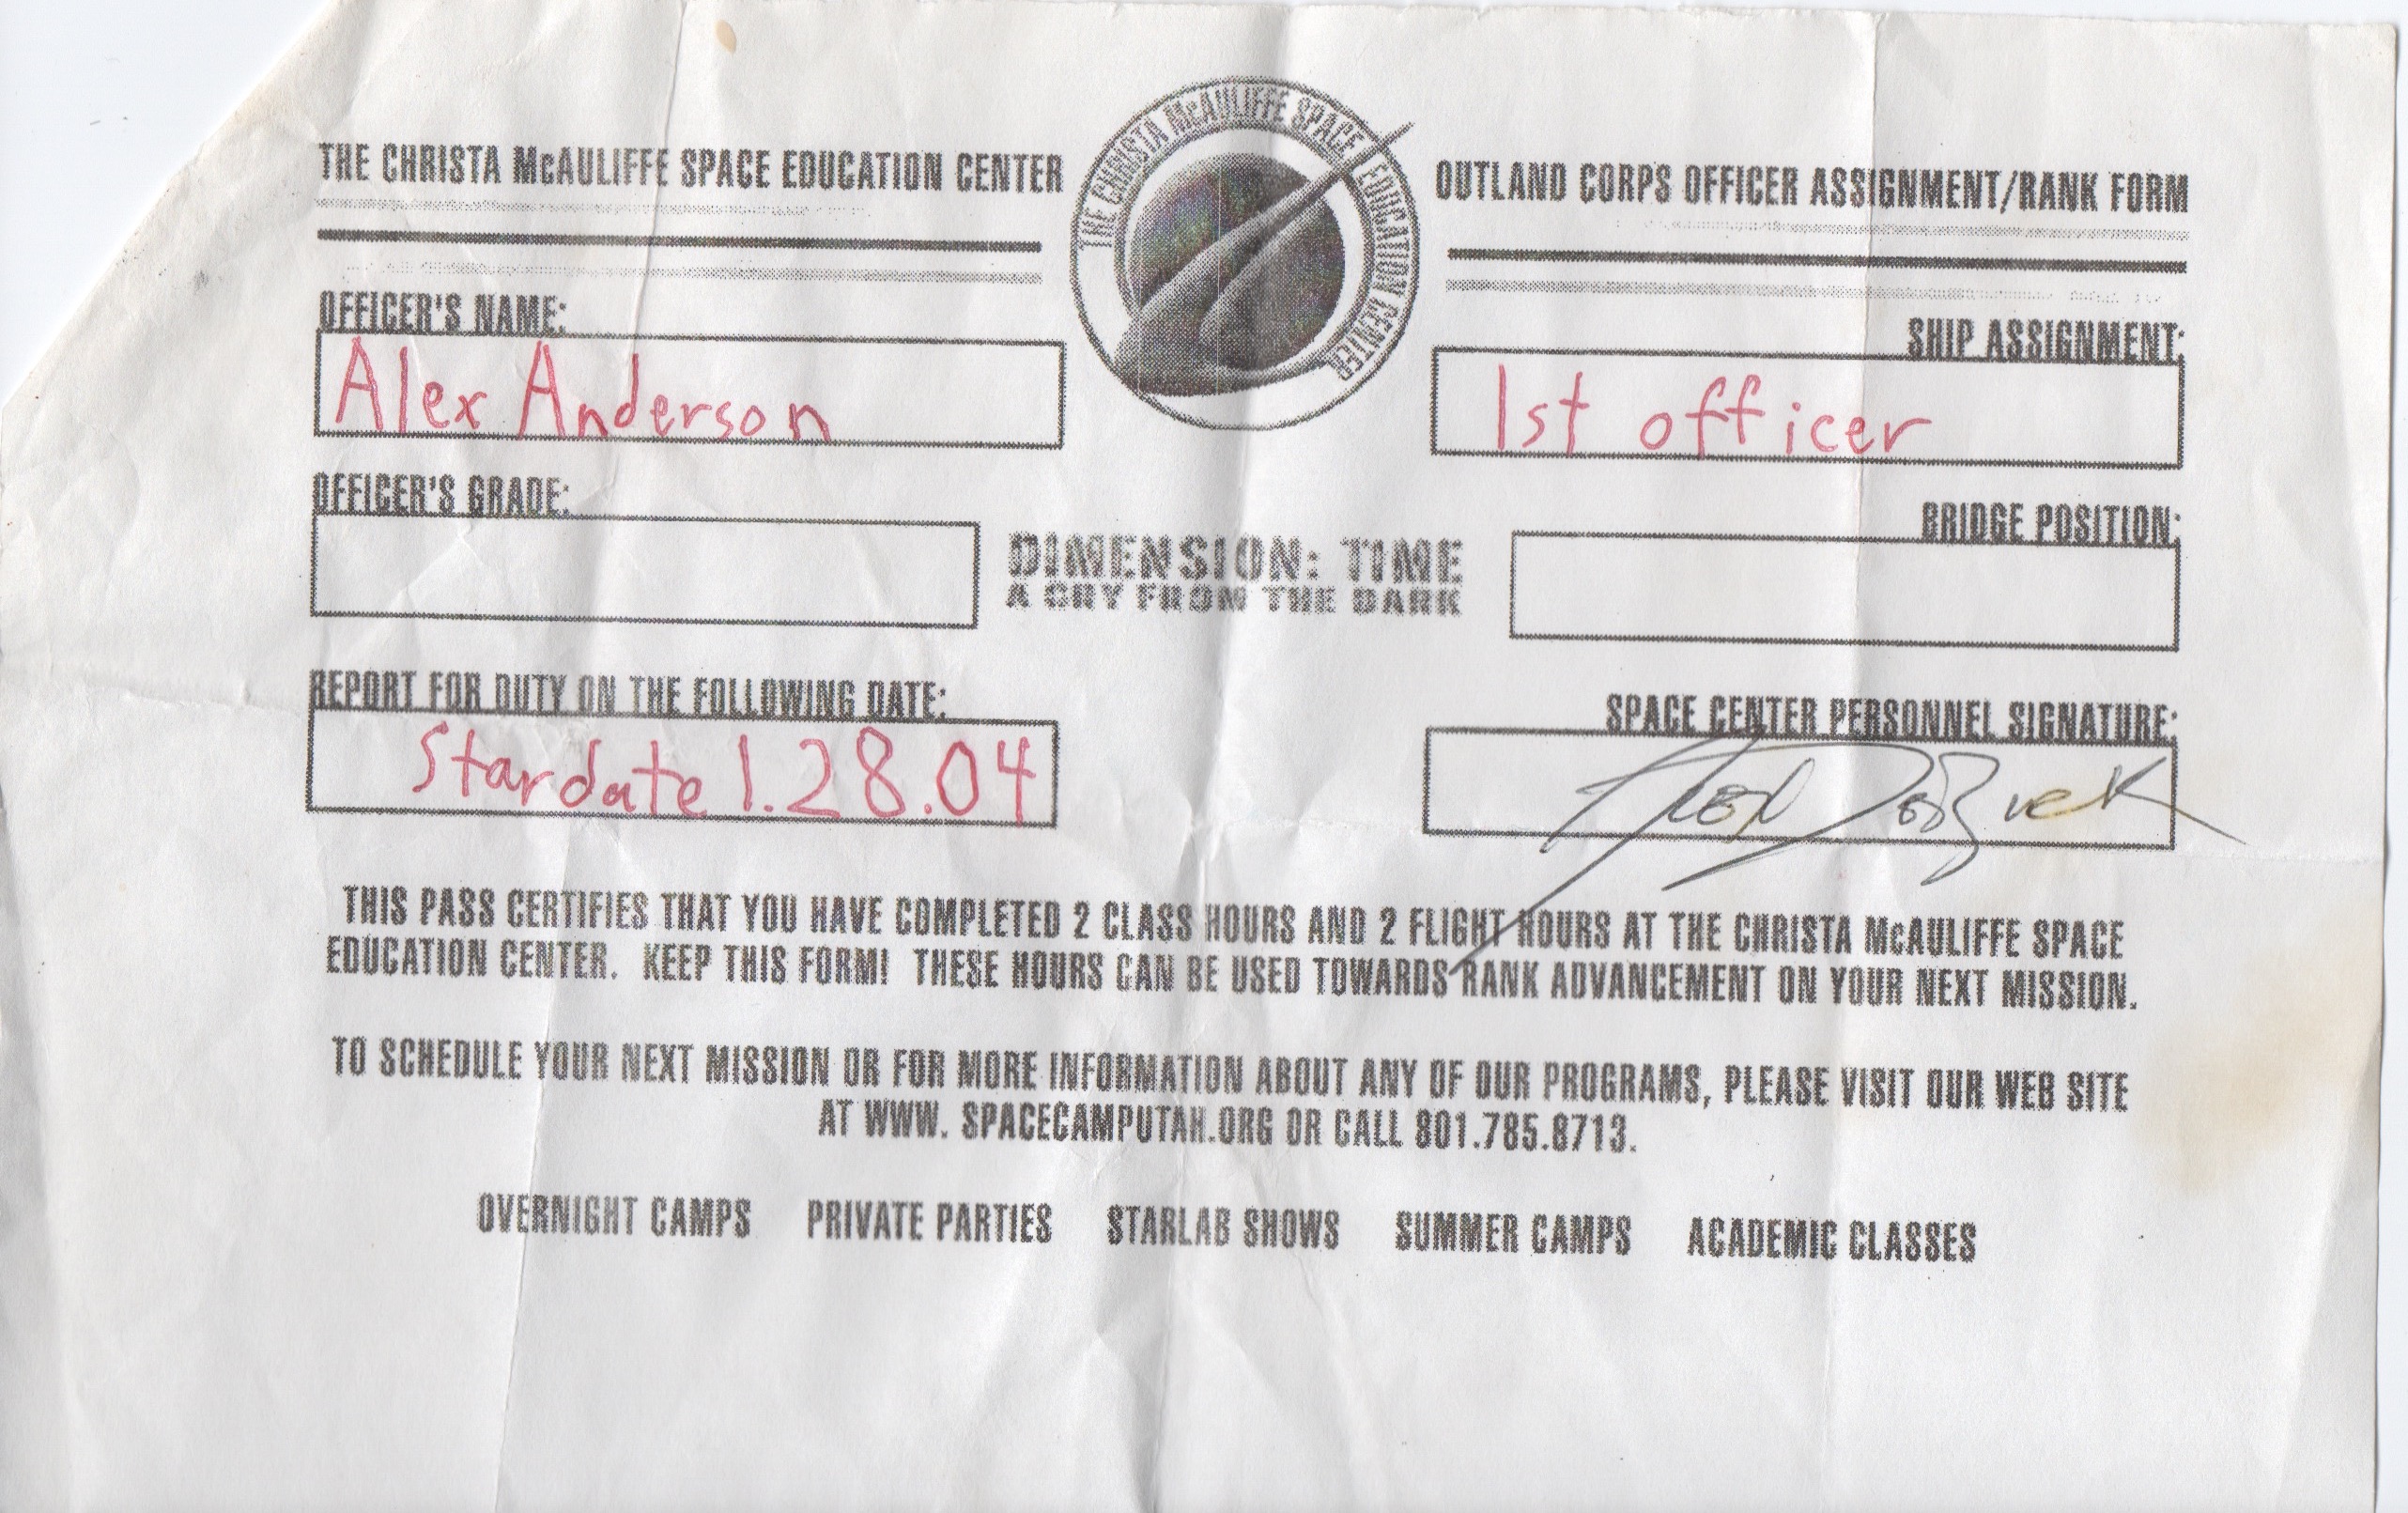 THE CHRISTA McAULIFFE SPACE EDUCATION CENTER
THE CHRISTA McAULIFFE SPACE EDUCATION CENTER
OUTLAND CORPS OFFICER ASSIGNMENT/RANK FORM
OFFICER'S NAME:
Alex Anderson
SHIP ASSIGNMENT:
1st officer
OFFICER'S GRADE:
BRIDGE POSITION:
DIMENSION: TIME
A CRY FROM THE DARK
REPORT FOR DUTY ON THE FOLLOWING DATE:
Stardate 1.28.04
SPACE CENTER PERSONNEL SIGNATURE:
THIS PASS CERTIFIES THAT YOU HAVE COMPLETED 2 CLASS HOURS AND 2 FLIGHT HOURS AT THE CHRISTA McAULIFFE SPACE
EDUCATION CENTER. KEEP THIS FORM! THESE HOURS CAN BE USED TOWARDS RANK ADVANCEMENT ON YOUR NEXT MISSION.
TO SCHEDULE YOUR NEXT MISSION OR FOR MORE INFORMATION ABOUT ANY OF OUR PROGRAMS, PLEASE VISIT OUR WEB SITE
AT WWW. SPACECAMPUTAH.ORG OR CALL 801.785.8713.
OVERNIGHT CAMPS PRIVATE PARTIES STARLAB SHOWS SUMMER CAMPS ACADEMIC CLASSES